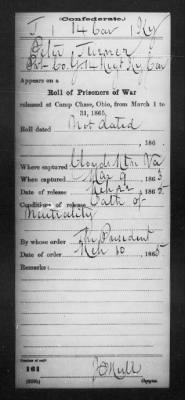 (Confederate.)
J | 14 Cav | Ky
Peter J. Turner
Pvt Co. G, 14 Regt Ky. Cav
Appears on a
Roll of Prisoners of War
released at Camp Chase, Ohio, from March 1 to
31, 1865.
Roll dated
Not dated
, 186 .
Where captured Va
When captured Mar 9, 1863
Date of release Mch 22, 1865
Condition of release Oath of
Neutrality
By whose order The President
Date of order Mch 10, 1865
Remarks:
Number of roll:
161
Copyist.